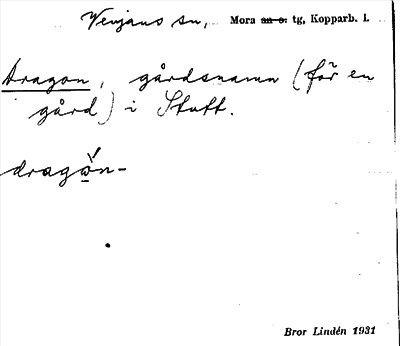 Venjans sn, Mora sn o. tg, Kopparb. l.
Dragon, gårdsnamn (för en
gård) i Stutt.
dragòn-
Bror Lindén 1931